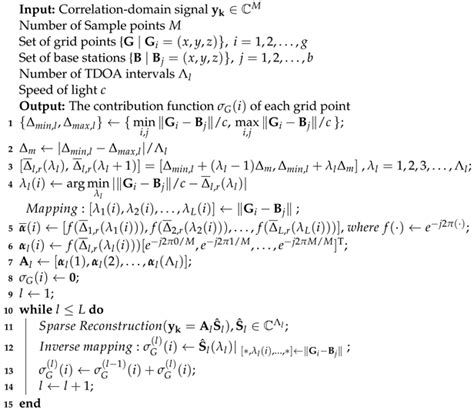 Input: Correlation-domain signal y_k ∈ ℂ^M
Number of Sample points M
Set of grid points {G | G_i = (x, y, z)}, i = 1, 2, . . . , g
Set of base stations {B | B_j = (x, y, z)}, j = 1, 2, . . . , b
Number of TDOA intervals Λ_l
Speed of light c
Output: The contribution function σ_G(i) of each grid point
1 {Δ_{min,l}, Δ_{max,l}} ← { min_{i,j} ‖G_i − B_j‖/c, max_{i,j} ‖G_i − B_j‖/c };
2 Δ_m ← |Δ_{min,l} − Δ_{max,l}|/Λ_l
3 [Δ̅_{l,r}(λ_l), Δ̅_{l,r}(λ_l + 1)] = [Δ_{min,l} + (λ_l − 1)Δ_m, Δ_{min,l} + λ_lΔ_m] , λ_l = 1, 2, 3, . . . , Λ_l;
4 λ_l(i) ← arg min_{λ_l} |‖G_i − B_j‖/c − Δ̅_{l,r}(λ_l)|
Mapping : [λ_1(i), λ_2(i), . . . , λ_L(i)] ← ‖G_i − B_j‖ ;
5 α̅(i) ← [f(Δ̅_{1,r}(λ_1(i))), f(Δ̅_{2,r}(λ_2(i))), . . . , f(Δ̅_{L,r}(λ_L(i)))], where f(·) ← e^{−j2π(·)};
6 α_l(i) ← f(Δ̅_{l,r}(λ_l(i)))[e^{−j2π0/M}, e^{−j2π1/M}, . . . , e^{−j2πM/M}]^T;
7 A_l ← [α_l(1), α_l(2), . . . , α_l(Λ_l)];
8 σ_G(i) ← 0;
9 l ← 1;
10 while l ≤ L do
11 Sparse Reconstruction(y_k = A_lŜ_l), Ŝ_l ∈ ℂ^{Λ_l};
12 Inverse mapping : σ_G^{(l)}(i) ← Ŝ_l(λ_l)|_{[*,λ_l(i),...,*]←‖G_i−B_j‖} ;
13 σ_G^{(l)}(i) ← σ_G^{(l−1)}(i) + σ_G^{(l)}(i);
14 l ← l + 1;
15 end